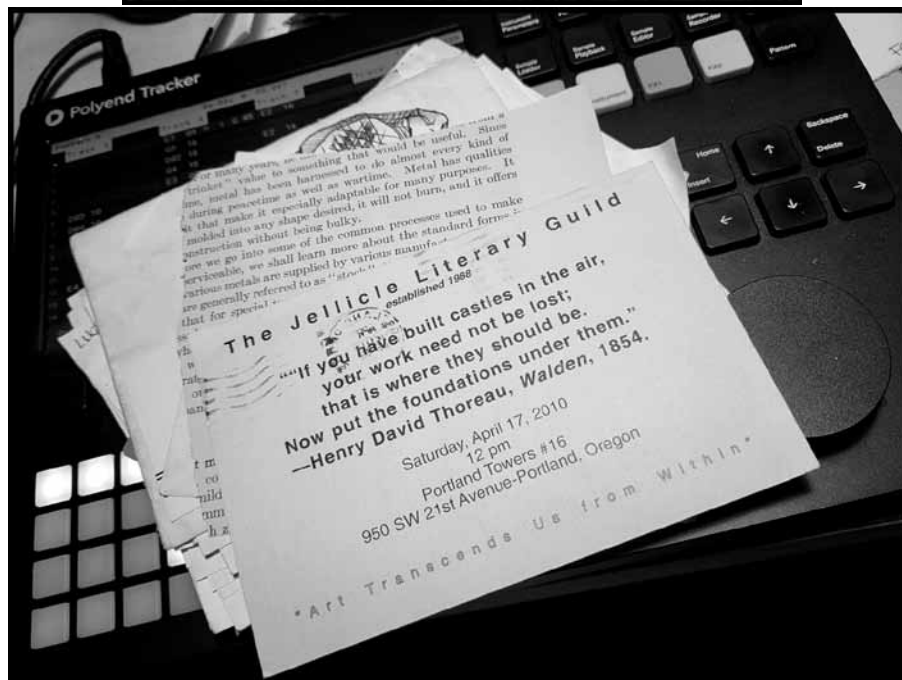 Polyend Tracker
Instrument
Parameters
Sample
Loader
Sample
Playback
Sample
Editor
Sample
Recorder
Instrument
Pattern
Home
Insert
Backspace
Delete
↑
←
↓
→
or many years,
trinket" value to something that would be useful. Since
metal has been harnessed to do almost every kind of
during peacetime as well as wartime. Metal has qualities
that make it especially adaptable for many purposes. It
molded into any shape desired, it will not burn, and it offers
construction without being bulky.
ore we go into some of the common processes used to make
serviceable, we shall learn more about the standard forms
various metals are supplied by various
are generally referred to as "stock"
that for special
The Jellicle Literary Guild
established 1988
""If you have built castles in the air,
your work need not be lost;
that is where they should be.
Now put the foundations under them."
—Henry David Thoreau, Walden, 1854.
Saturday, April 17, 2010
12 pm
Portland Towers #16
950 SW 21st Avenue-Portland, Oregon
*Art Transcends Us from Within*